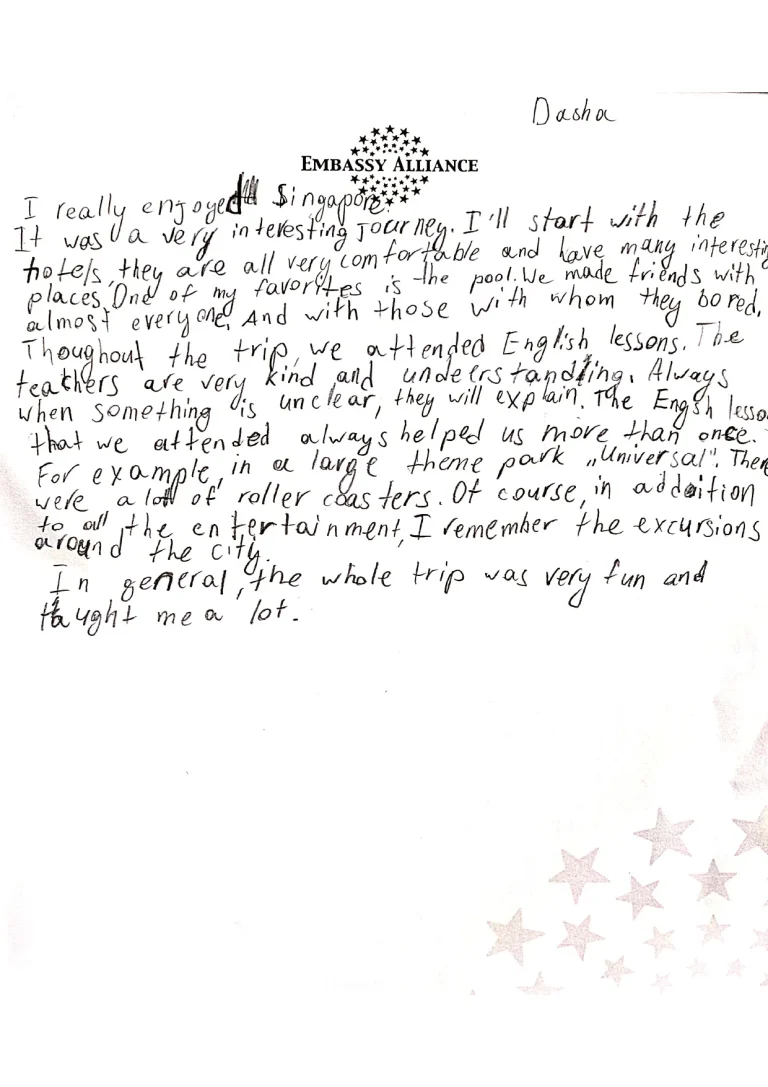 Dasha
EMBASSY ALLIANCE
I really enjoyed Singapore.
It was a very interesting journey. I'll start with the
hotels, they are all very comfortable and have many interestin
places. One of my favorites is the pool. We made friends with
almost everyone. And with those with whom they bored.
Thoughout the trip, we attended English lessons. The
teachers are very kind and understandling. Always
when something is unclear, they will explain. The Engsh lesso
that we attended always helped us more than once.
For example, in a large theme park „Universal". There
were a lot of roller coasters. Of course, in addoition
to all the entertainment, I remember the excursions
around the city.
In general, the whole trip was very fun and
taught me a lot.